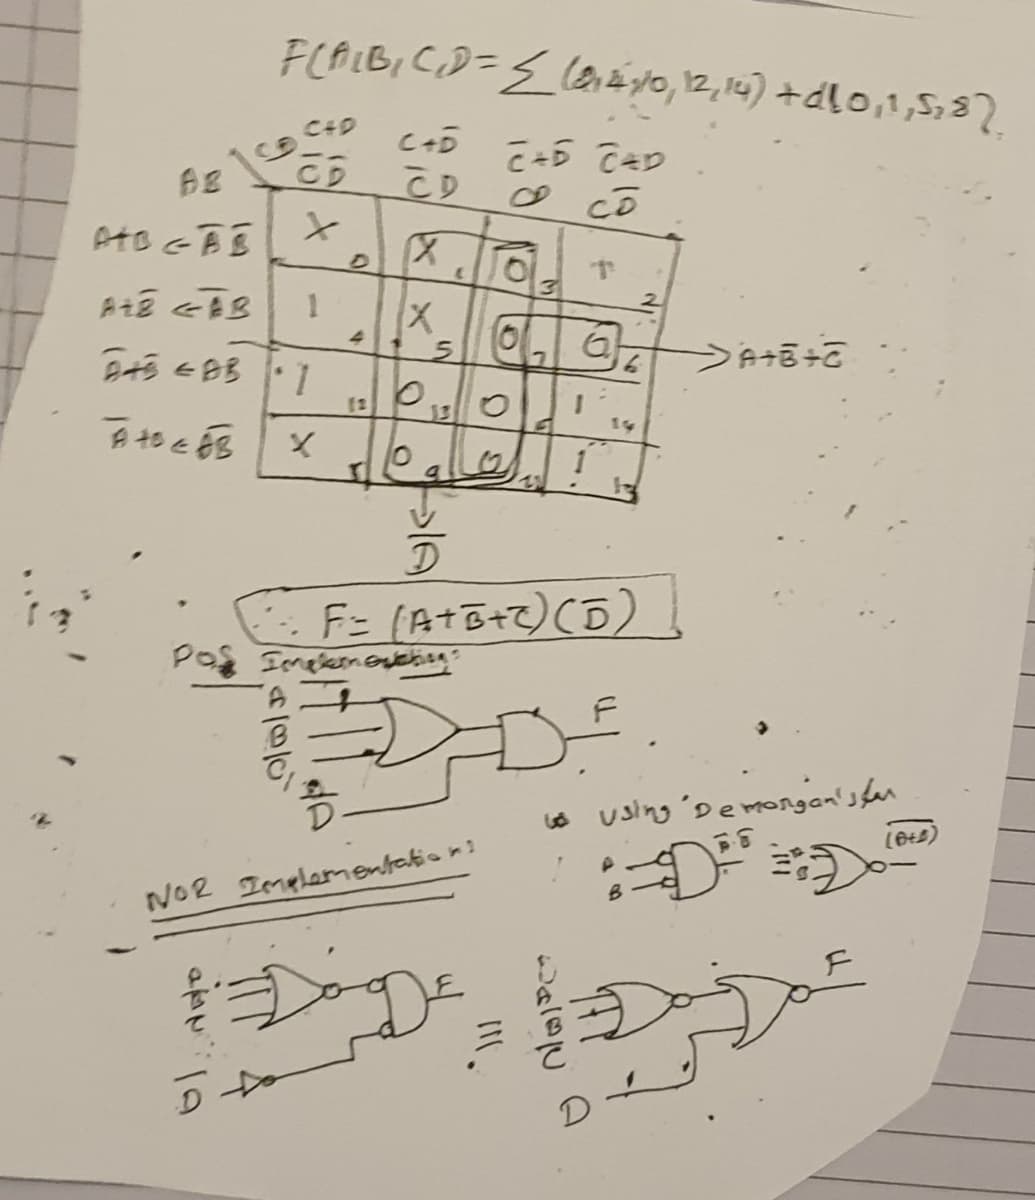 F(A,B,C,D= Σ (2,4,10,12,14) + d(0,1,5,8)
C+D C+D̅ C̅+D̅ C̅+D
CD C̅D̅ C̅D CD CD̅
AB
A+B ← A̅B̅ X 0 X 1 0 3 1 2
A+B̅ ← A̅B 1 4 X 5 0 7 0 6 → A+B̅+C̅
A̅+B̅ ← AB 1 12 0 13 0 1 14
A̅+B ← AB̅ X 0 9 0 11 1
D̅
∴ F= (A+B̅+C̅)(D̅)
POS Implementation:
A
B̅
C̅
D̅
F
using Demorgan's
A
B
A̅.B̅
≡
A
B
(A+B)̅
NOR Implementation:
A
B̅
C̅
D̅
F
≡
A
B̅
C̅
D
F